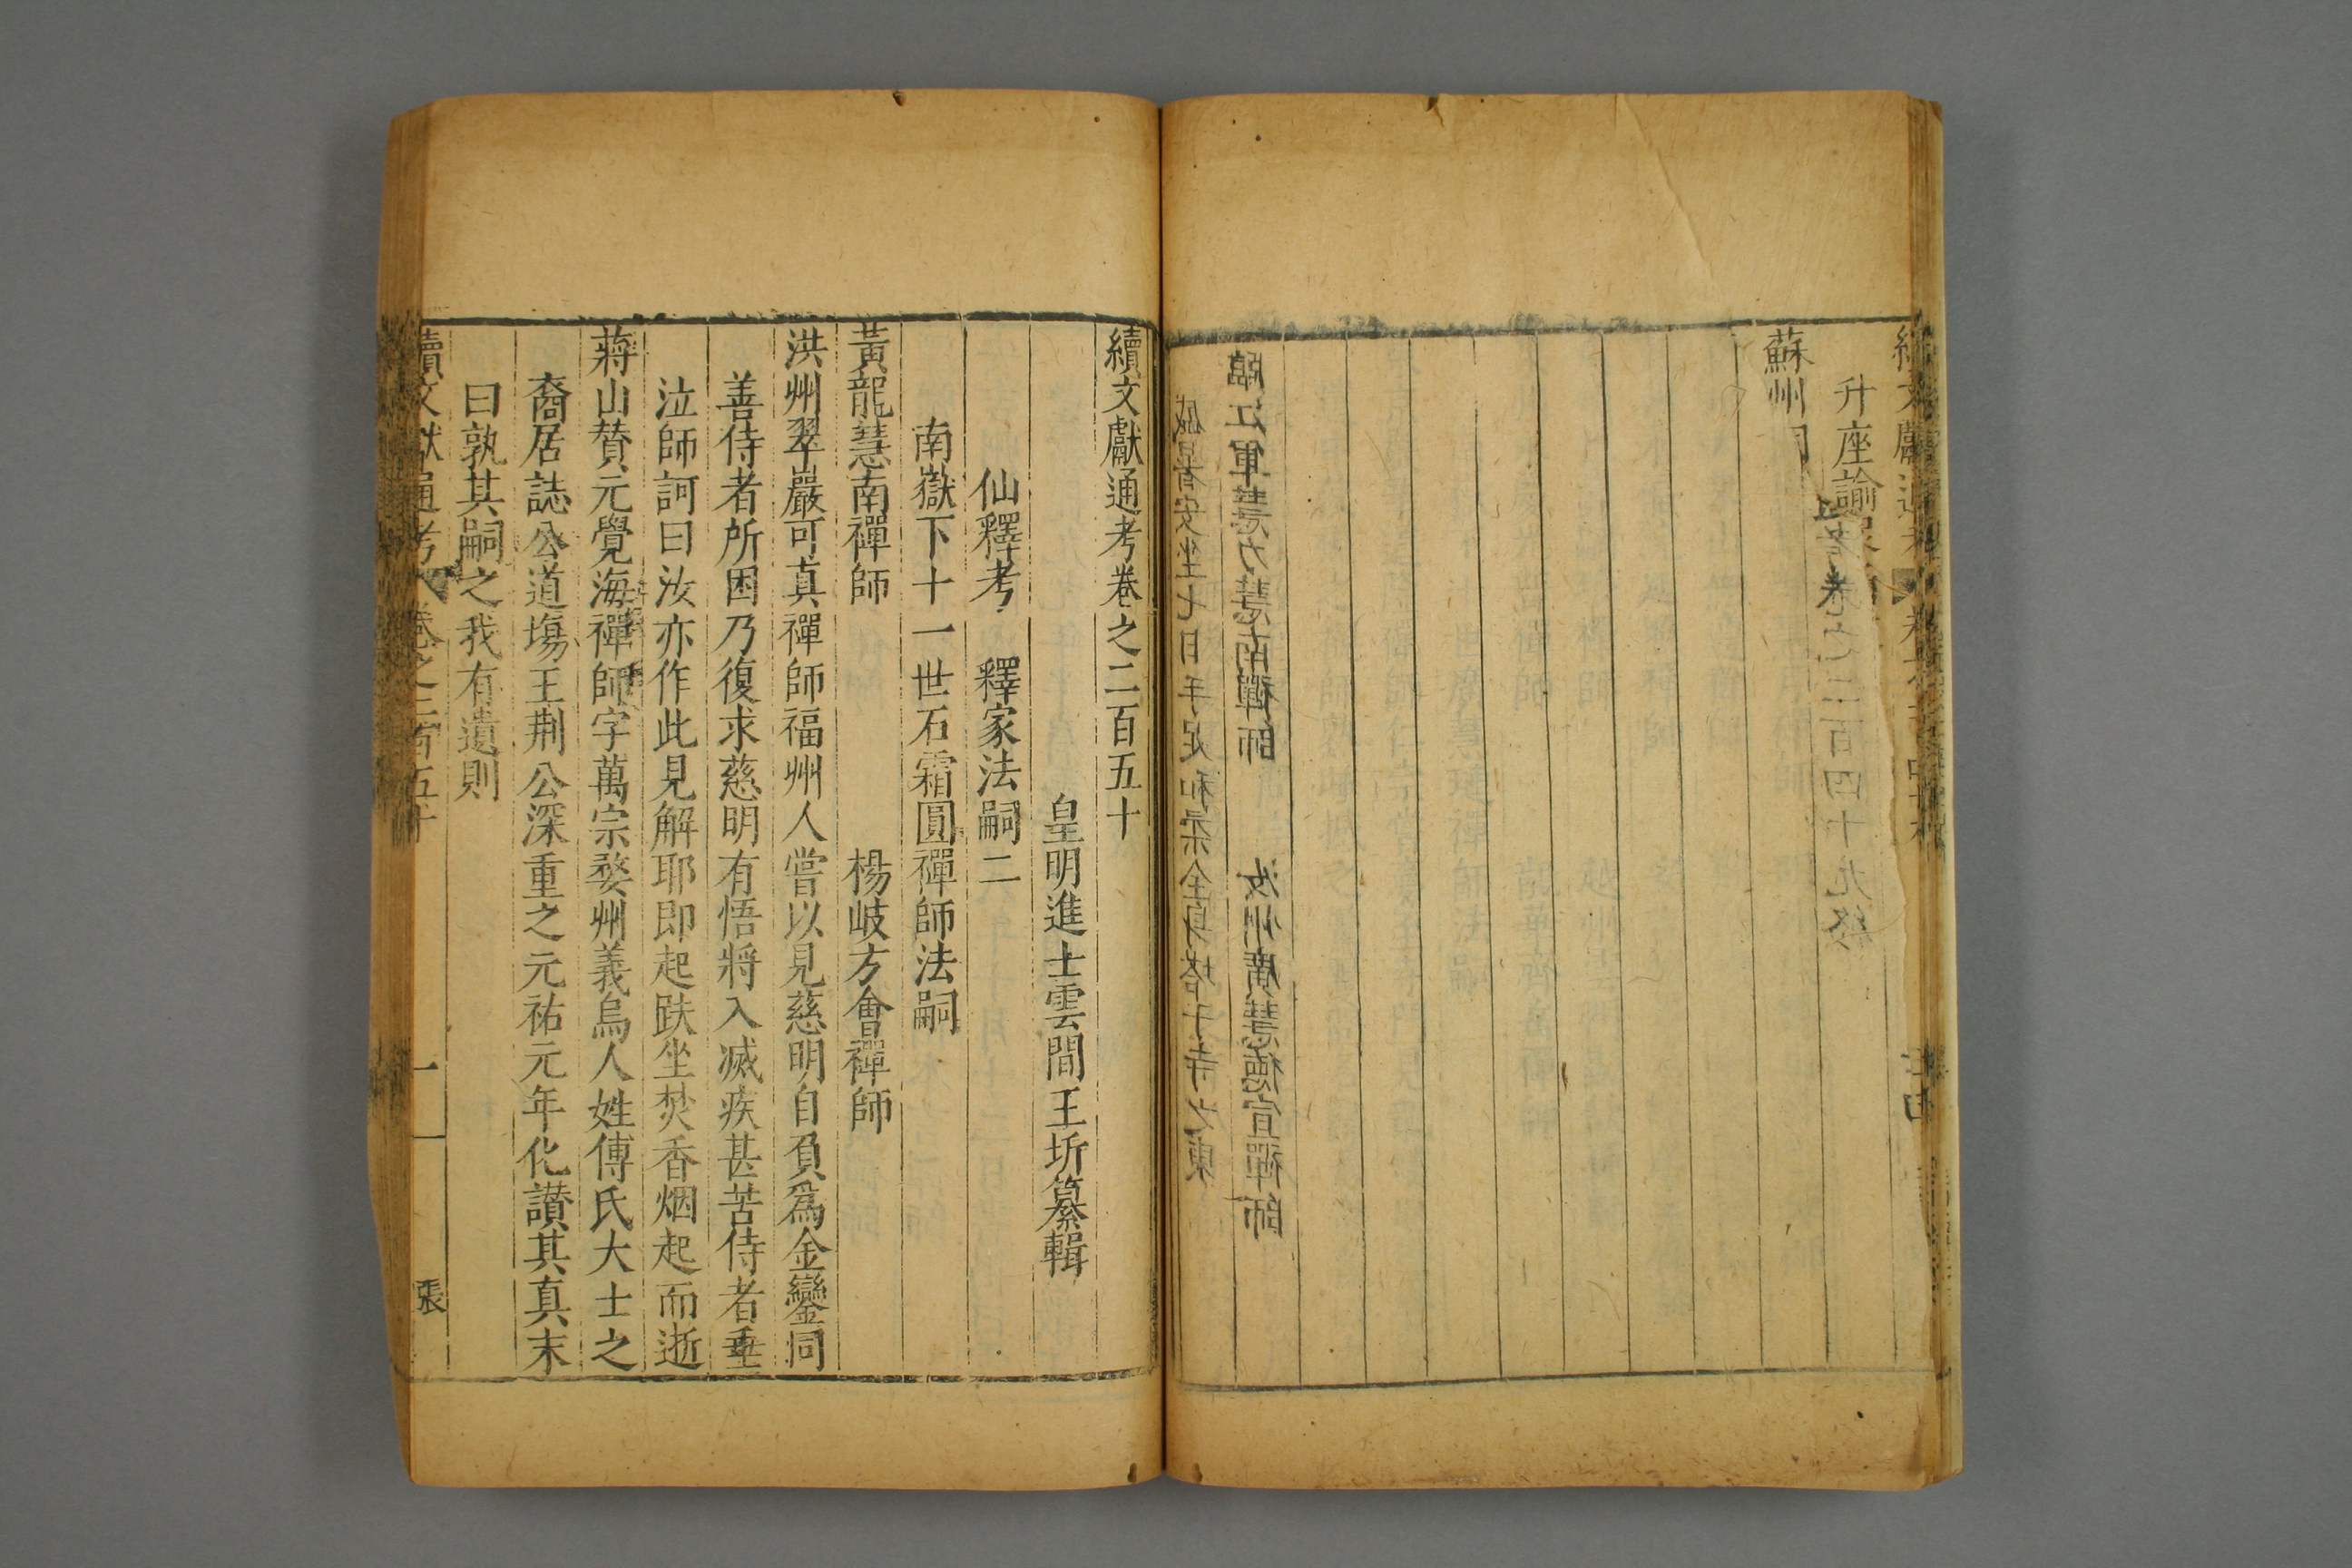 升座諭
蘇州
卷之二百四十九終
臨江軍慧力慧南禪師　汝州廣慧德宣禪師
安坐七日手足和柔全身塔于寺之東
續文獻通考卷之二百五十
皇明進士雲間王圻纂輯
仙釋考　釋家法嗣二
南嶽下十一世石霜圓禪師法嗣
黃龍慧南禪師　楊岐方會禪師
洪州翠巖可真禪師福州人嘗以見慈明自負爲金鑾同
善侍者所困乃復求慈明有悟將入滅疾甚苦侍者垂
泣師訶曰汝亦作此見解耶即起趺坐焚香烟起而逝
蔣山贊元覺海禪師字萬宗婺州義烏人姓傅氏大士之
裔居誌公道塲王荆公深重之元祐元年化讃其真末
曰孰其嗣之我有遺則
續文獻通考　卷之二百五十　一　張